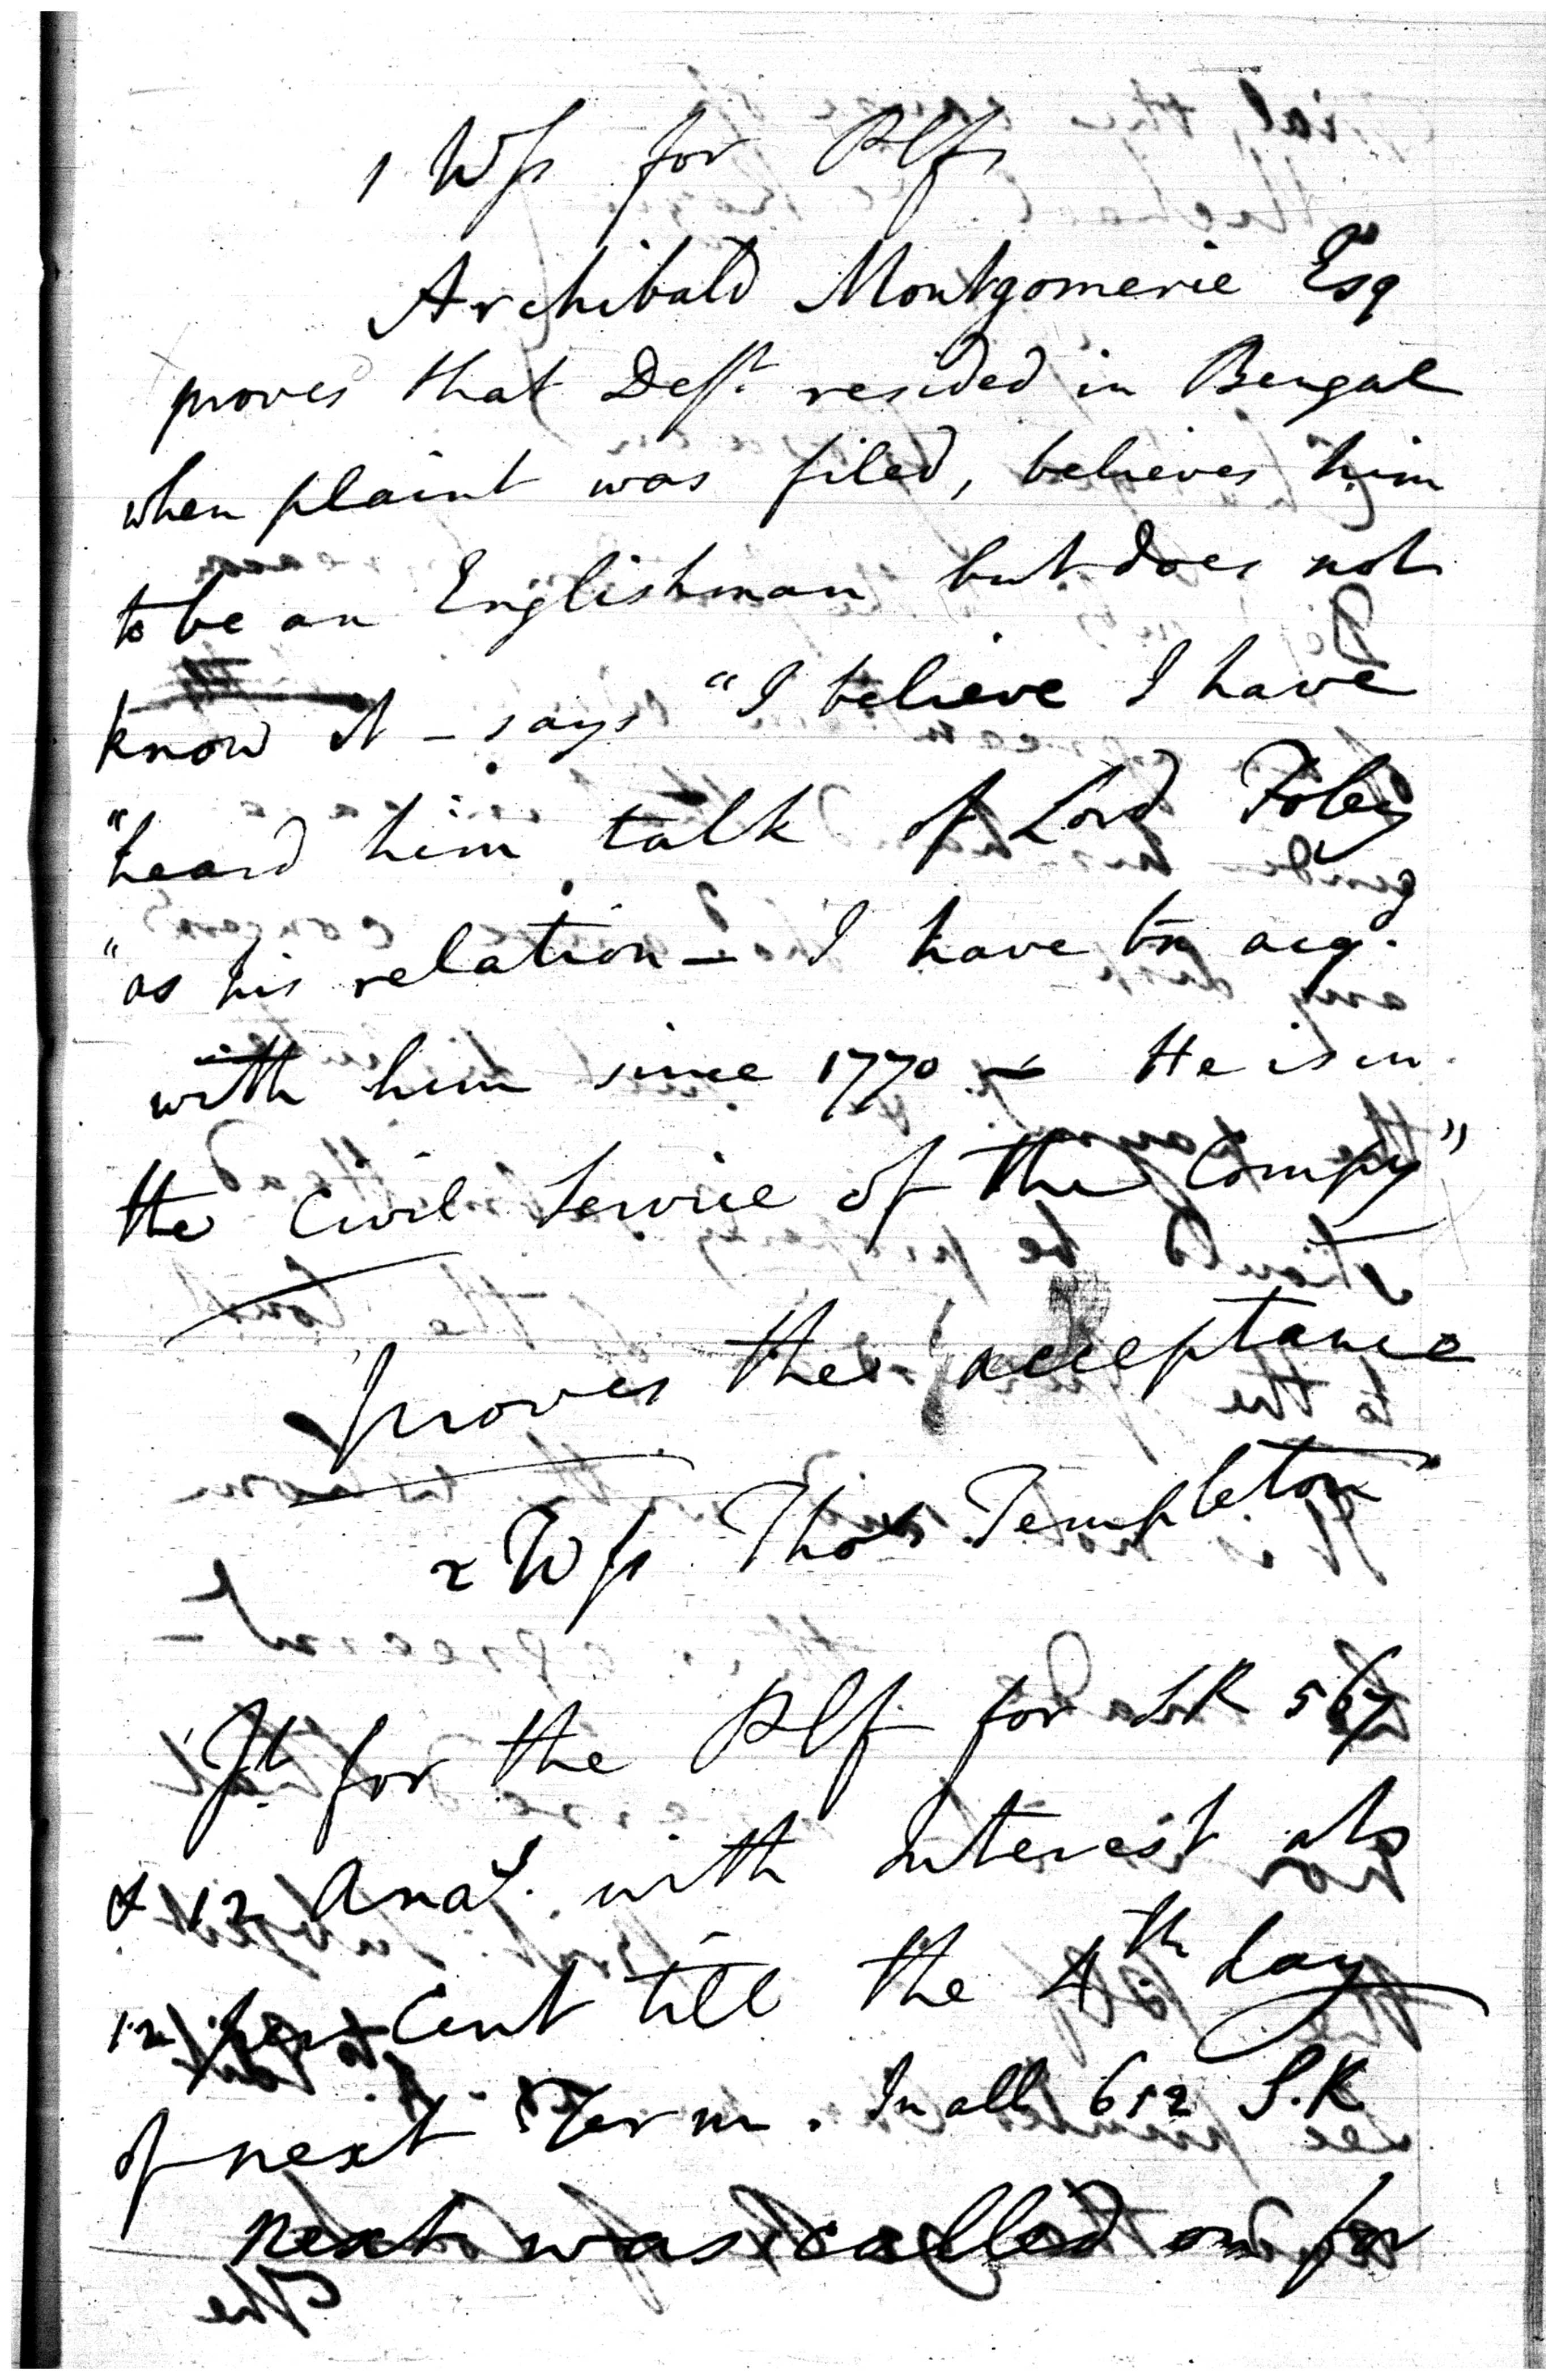 1 Wss for Plf
Archibald Montgomerie Esq
proves that Deft. resided in Bengal
when plaint was filed, believes him
to be an Englishman but does not
know it – says "I believe I have
"heard him talk of Lord Foley
"as his relation – I have bn acq.
with him since 1770 – He is in
the Civil Service of the Compy"
proves the acceptance
2 Wss Thos Templeton
Jt. for the Plf for SR 567
& 12 Anas. with Interest at
12 per Cent till the 4th day
of next Term. In all 652 S.R
Next was called on for